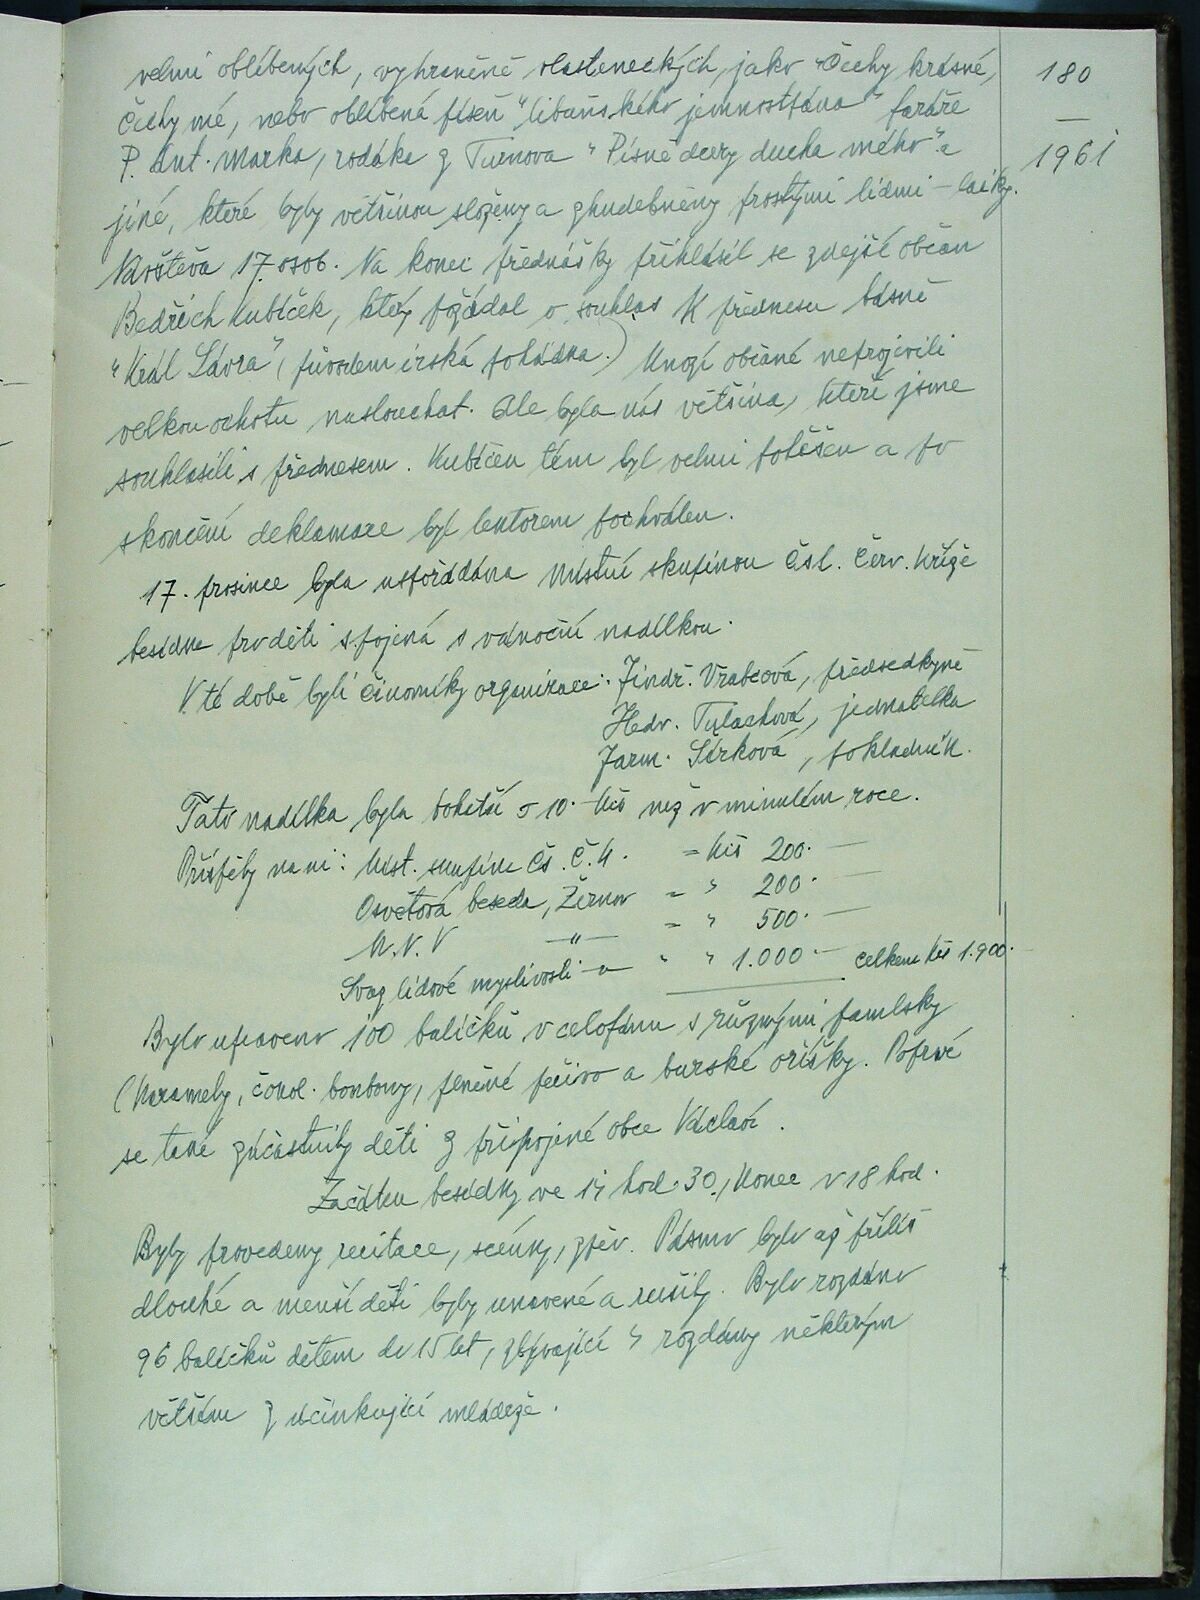 velmi oblíbených, vyhraněně vlasteneckých, jako "Čechy krásné,
180
Čechy mé, nebo oblíbená píseň "libuňského jemnostpána" faráře
—
P. Ant. Marka, rodáka z Turnova "Písně dcery ducha mého" a
1961
jiné, které byly většinou složeny a zhudebněny prostými lidmi – laiky.
Návštěva 17 osob. Na konci přednášky přihlásil se zdejší občan
Bedřich Kubíček, který požádal o souhlas k přednesu básně
"Král Lávra" (původem irská pohádka.) Mnozí občané neprojevili
velkou ochotu naslouchat. Ale byla nás většina, kteří jsme
souhlasili s přednesem. Kubíček tím byl velmi potěšen a po
skončení deklamace byl lektorem pochválen.
17. prosince byla uspořádána Místní skupinou Čsl. Červ. Kříže
besídka pro děti spojená s vánoční nadílkou.
V té době byli činovníky organizace: Jindř. Vrabcová, předsedkyně
Hedv. Tulachová, jednatelka
Jarm. Sírková, pokladník.
Tato nadílka byla bohatší o 10.– Kčs než v minulém roce.
Přispěly na ni: Míst. skupina Čs. Č. K. = Kčs 200.—
Osvětová beseda, Žernov = " 200.—
M.N.V —"— = " 500.—
Svaz lidové myslivosti –"– " " 1.000.— celkem Kčs 1.900.–
Bylo upraveno 100 balíčků v celofánu s různými pamlsky
(karamely, čokol. bonbony, jemné pečivo a burské oříšky. Poprvé
se také zúčastnily děti z připojené obce Václaví.
Začátek besídky ve 14 hod. 30, konec v 18 hod.
Byly provedeny recitace, scénky, zpěv. Pásmo bylo až příliš
dlouhé a menší děti byly unavené a rušily. Bylo rozdáno
96 balíčků dětem do 15 let, zbývající 4 rozdány některým
větším z účinkující mládeže.